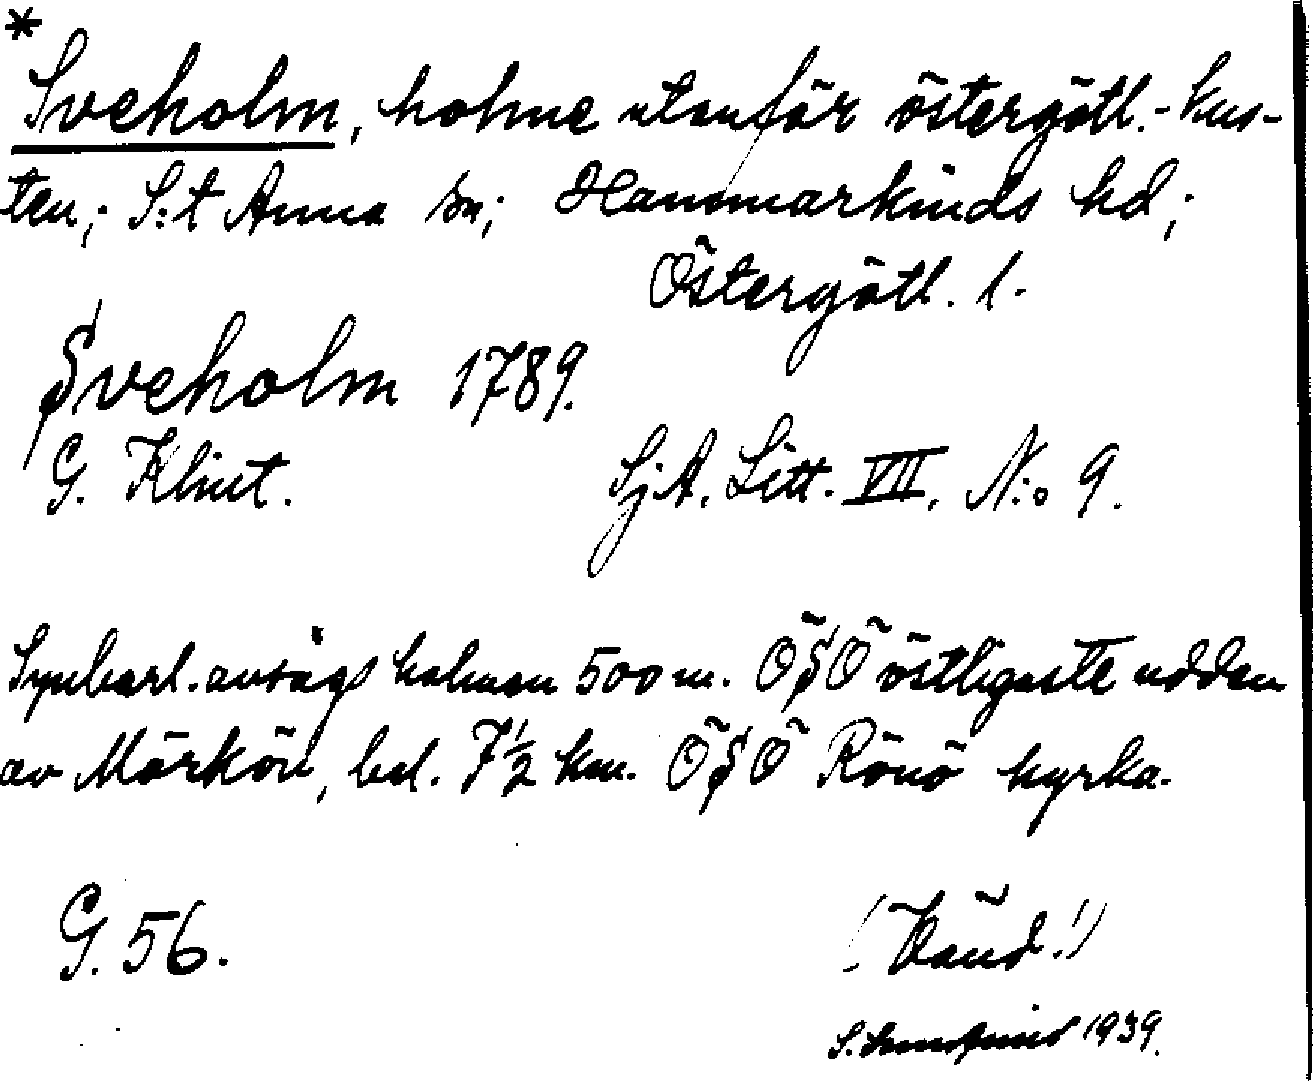 *
Sveholm, holme utanför östergötl.-kus-
ten; S:t Anna sn; Hammarkinds hd;
Östergötl. l.
Sveholm 1789.
G. Klint. Sj.A. Litt. VII. N:o 9.
Synbarl. avsågs holmen 500 m. ÖSÖ östligaste udden
av Mörkön, bel. 7½ km. ÖSÖ Rönö kyrka.
G. 56. (Vänd!)
S. 1939.